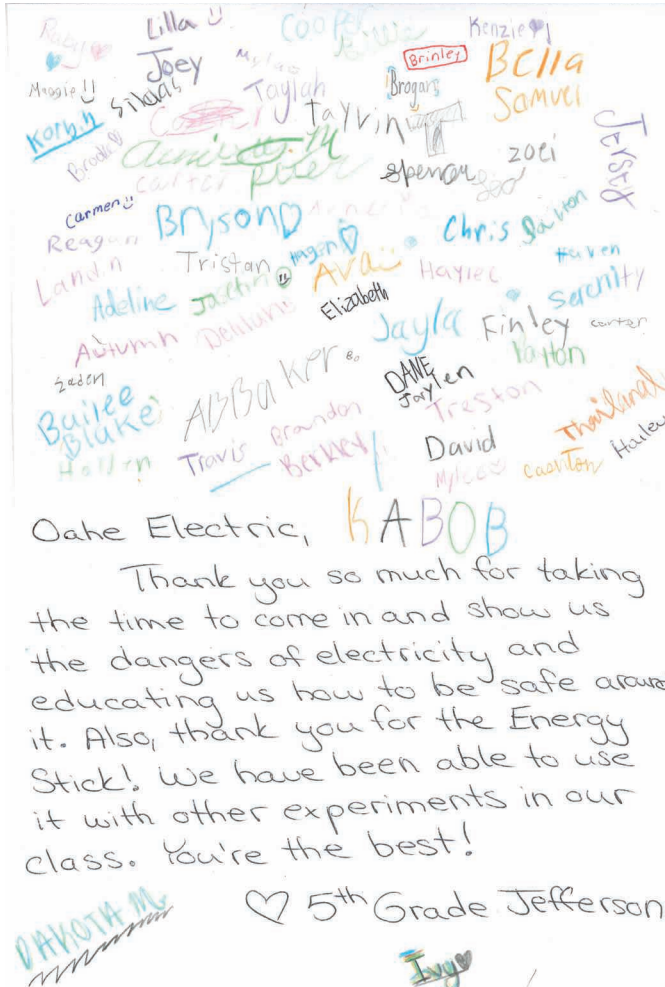 Ruby Lilla Cooper Kenzie
Billie
Maggie Joey Brinley Bella
Silas Taylah Brogan Samuel
Korbin Tayvin T
Brooke Peter Spencer Zoei Jersey
Carter
Carmen Bryson Chris Paxton
Reagan Tristan Hagen Haven
Landin Ava Haylee
Adeline Joselin Elizabeth Serenity
Autumn Jayla Finley Carter
Payton
Zaden ABBaker DANE
Jaylen
Bailee Brandon Treston Thailand
Blake
Holden Travis Berkley David Hailey
Mylee Cashton
Oahe Electric, KABOB
Thank you so much for taking
the time to come in and show us
the dangers of electricity and
educating us how to be safe around
it. Also, thank you for the Energy
Stick! We have been able to use
it with other experiments in our
class. You're the best!
♡ 5th Grade Jefferson
DAKOTA M.
Ivy